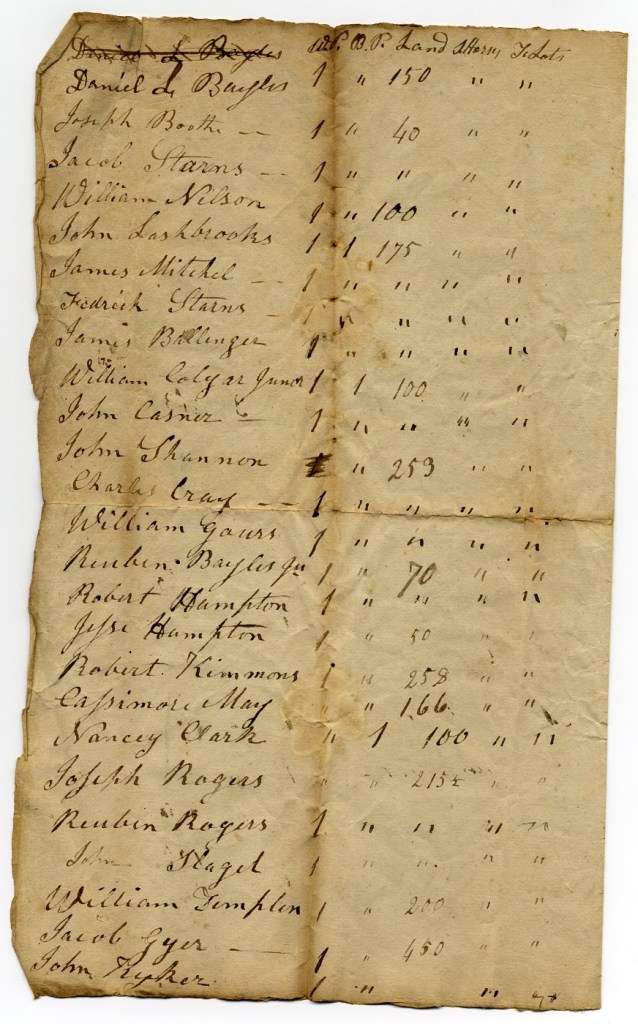 Daniel L Bayles W.P. B.P. Land S Horses T Lots
Daniel L Bayles 1 " 150 " "
Joseph Booth — 1 " 40 " "
Jacob Starns — 1 " " " "
William Nilson 1 " 100 " "
John Lashbrooks 1 1 175 " "
James Mitchel — 1 " " " "
Fedrick Starns — 1 " " " "
James Ballinger 1 " " " "
William Colyar Junor 1 1 100 " "
John Casner — 1 " " " "
John Shannon 1 " 253 " "
Charles Cray — 1 " " " "
William Gours 1 " " " "
Reuben Bayles Ju 1 " 70 " "
Robert Hampton 1 " " " "
Jesse Hampton 1 " 50 " "
Robert Kimmons 1 " 258 " "
Cassimore May " " 166 " "
Nancey Clark " 1 100 " "
Joseph Rogers " " 215½ " "
Reubin Rogers 1 " " " "
John Slagel 1 " " " "
William Templin 1 " 200 " "
Jacob Gyer — " 450 " "
John Kyker 1 " " "